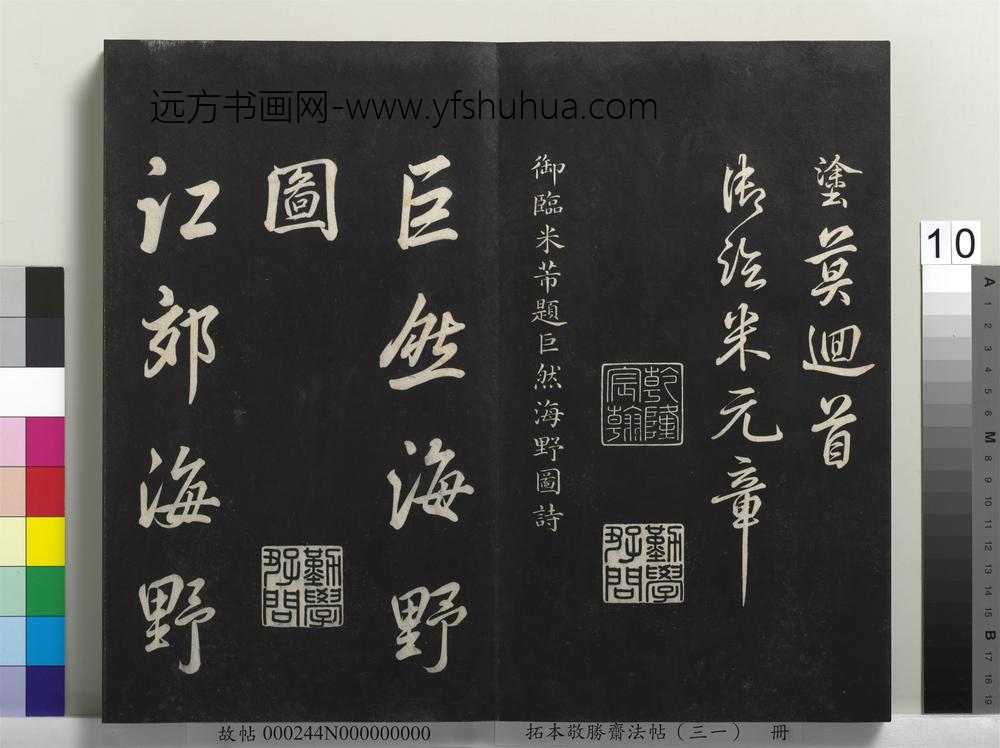 远方书画网-www.yfshuhua.com
塗莫迴首
米元章
乾隆宸翰
勤學好問
御臨米芾題巨然海野圖詩
巨然海野
圖
勤學好問
江郊海野
10
A
1
2
3
4
5
6
M
8
9
10
11
12
13
14
15
B
17
18
19
故帖 000244N000000000
拓本敬勝齋法帖（三一） 冊